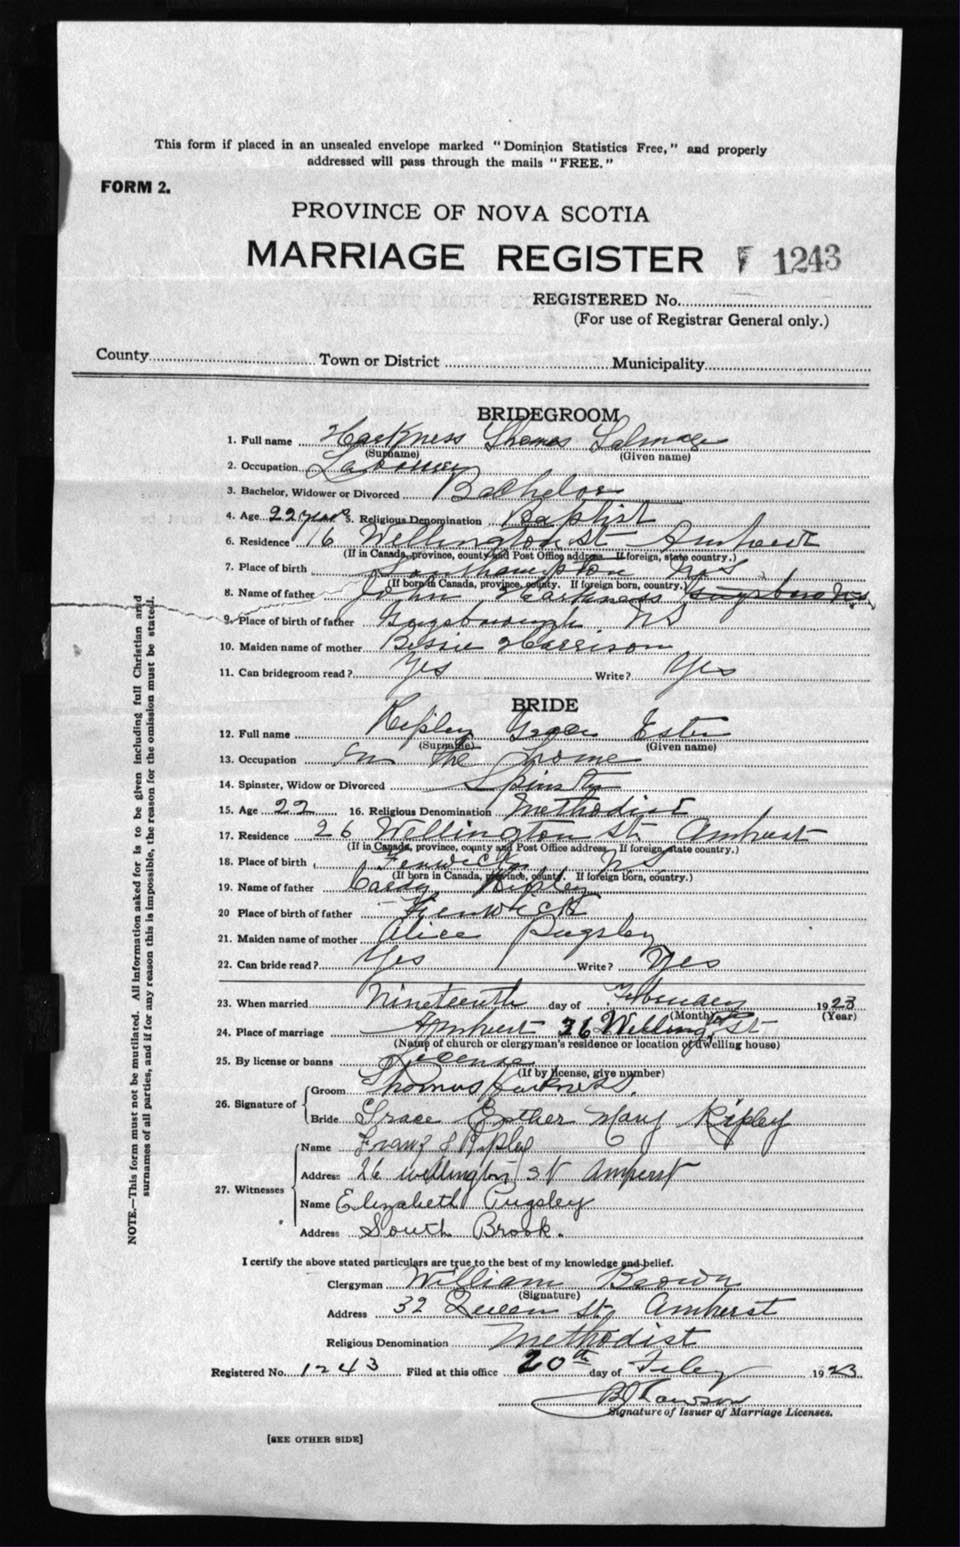 This form if placed in an unsealed envelope marked "Dominion Statistics Free," and properly
addressed will pass through the mails "FREE."
FORM 2.
PROVINCE OF NOVA SCOTIA
MARRIAGE REGISTER 1243
REGISTERED No.
(For use of Registrar General only.)
County Town or District Municipality
BRIDEGROOM
1. Full name Harkness Thomas Talmage
(Surname) (Given name)
2. Occupation Labourer
3. Bachelor, Widower or Divorced Bachelor
4. Age 22 years 5. Religious Denomination Baptist
6. Residence 16 Wellington St Amherst
(If in Canada, province, county and Post Office address. If foreign, state country.)
7. Place of birth Southampton N.S
(If born in Canada, province, county. If foreign born, country.)
8. Name of father John Harkness
9. Place of birth of father Guysborough NS
10. Maiden name of mother Bessie Harrison
11. Can bridegroom read? Yes Write? Yes
BRIDE
12. Full name Ripley Grace Ester
(Surname) (Given name)
13. Occupation In the Home
14. Spinster, Widow or Divorced Spinster
15. Age 22 16. Religious Denomination Methodist
17. Residence 26 Wellington St. Amherst
(If in Canada, province, county and Post Office address, If foreign, state country.)
18. Place of birth Fenwick N.S
(If born in Canada, province, county. If foreign born, country.)
19. Name of father Ripley
20 Place of birth of father Fenwick
21. Maiden name of mother Alice Pugsley
22. Can bride read? Yes Write? Yes
23. When married Nineteenth day of February 1923
(Month) (Year)
24. Place of marriage Amherst 26 Wellington St
(Name of church or clergyman's residence or location of dwelling house)
25. By license or banns License
(If by license, give number)
26. Signature of Groom Thomas Harkness.
Bride Grace Esther Mary Ripley
27. Witnesses
Name Ripley
Address 26 Wellington St Amherst
Name Elizabeth Pugsley
Address South Brook.
I certify the above stated particulars are true to the best of my knowledge and belief.
Clergyman William Brown
(Signature)
Address 32 Queen St. Amherst
Religious Denomination Methodist
Registered No. 1243 Filed at this office 20th day of Feby 1923
Lawson
Signature of Issuer of Marriage Licenses.
[SEE OTHER SIDE]
NOTE.—This form must not be mutilated. All information asked for is to be given including full Christian and
surnames of all parties, and if for any reason this is impossible, the reason for the omission must be stated.